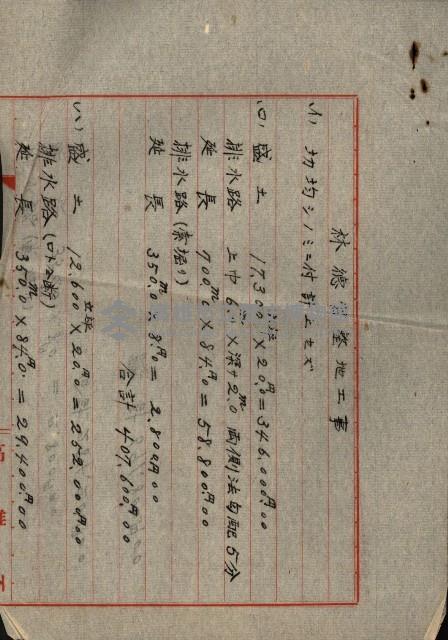 林德官整地工事
(イ) 切均シノミニ付計上セズ
(ロ) 盛土 17,300立坪×20円.0=346.000円.00
排水路 上巾6m×深サ2.0m 両側法勾配5分
延長 700m×84円.0=58.800円.00
排水路(素掘リ)
延長 350m.0×8円.0=2.800円.00
合計 407.600円.00
(ハ) 盛土 12.600立坪×20円.0=252.000円.00
排水路(ロト仝断)
延長 350m.0×84円.0=29.400円.00
高雄